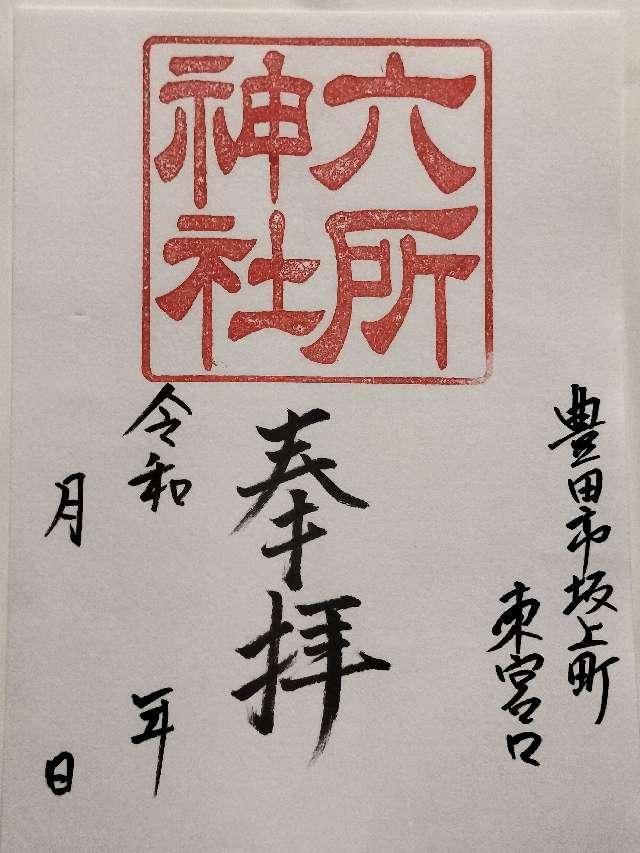 六所
神社
豊田市坂上町
東宮口
奉拝
令和 年
月 日